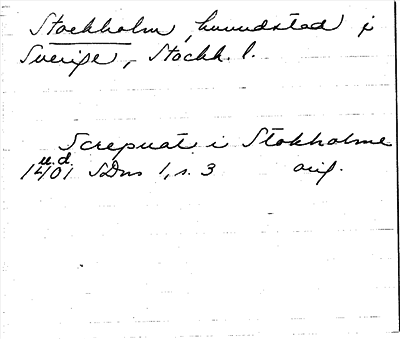 Stockholm, huvudstad i
Sverige, Stockh. l.
Screpuat i Stokholme
u.d.
1401 SDns 1, s. 3 orig.